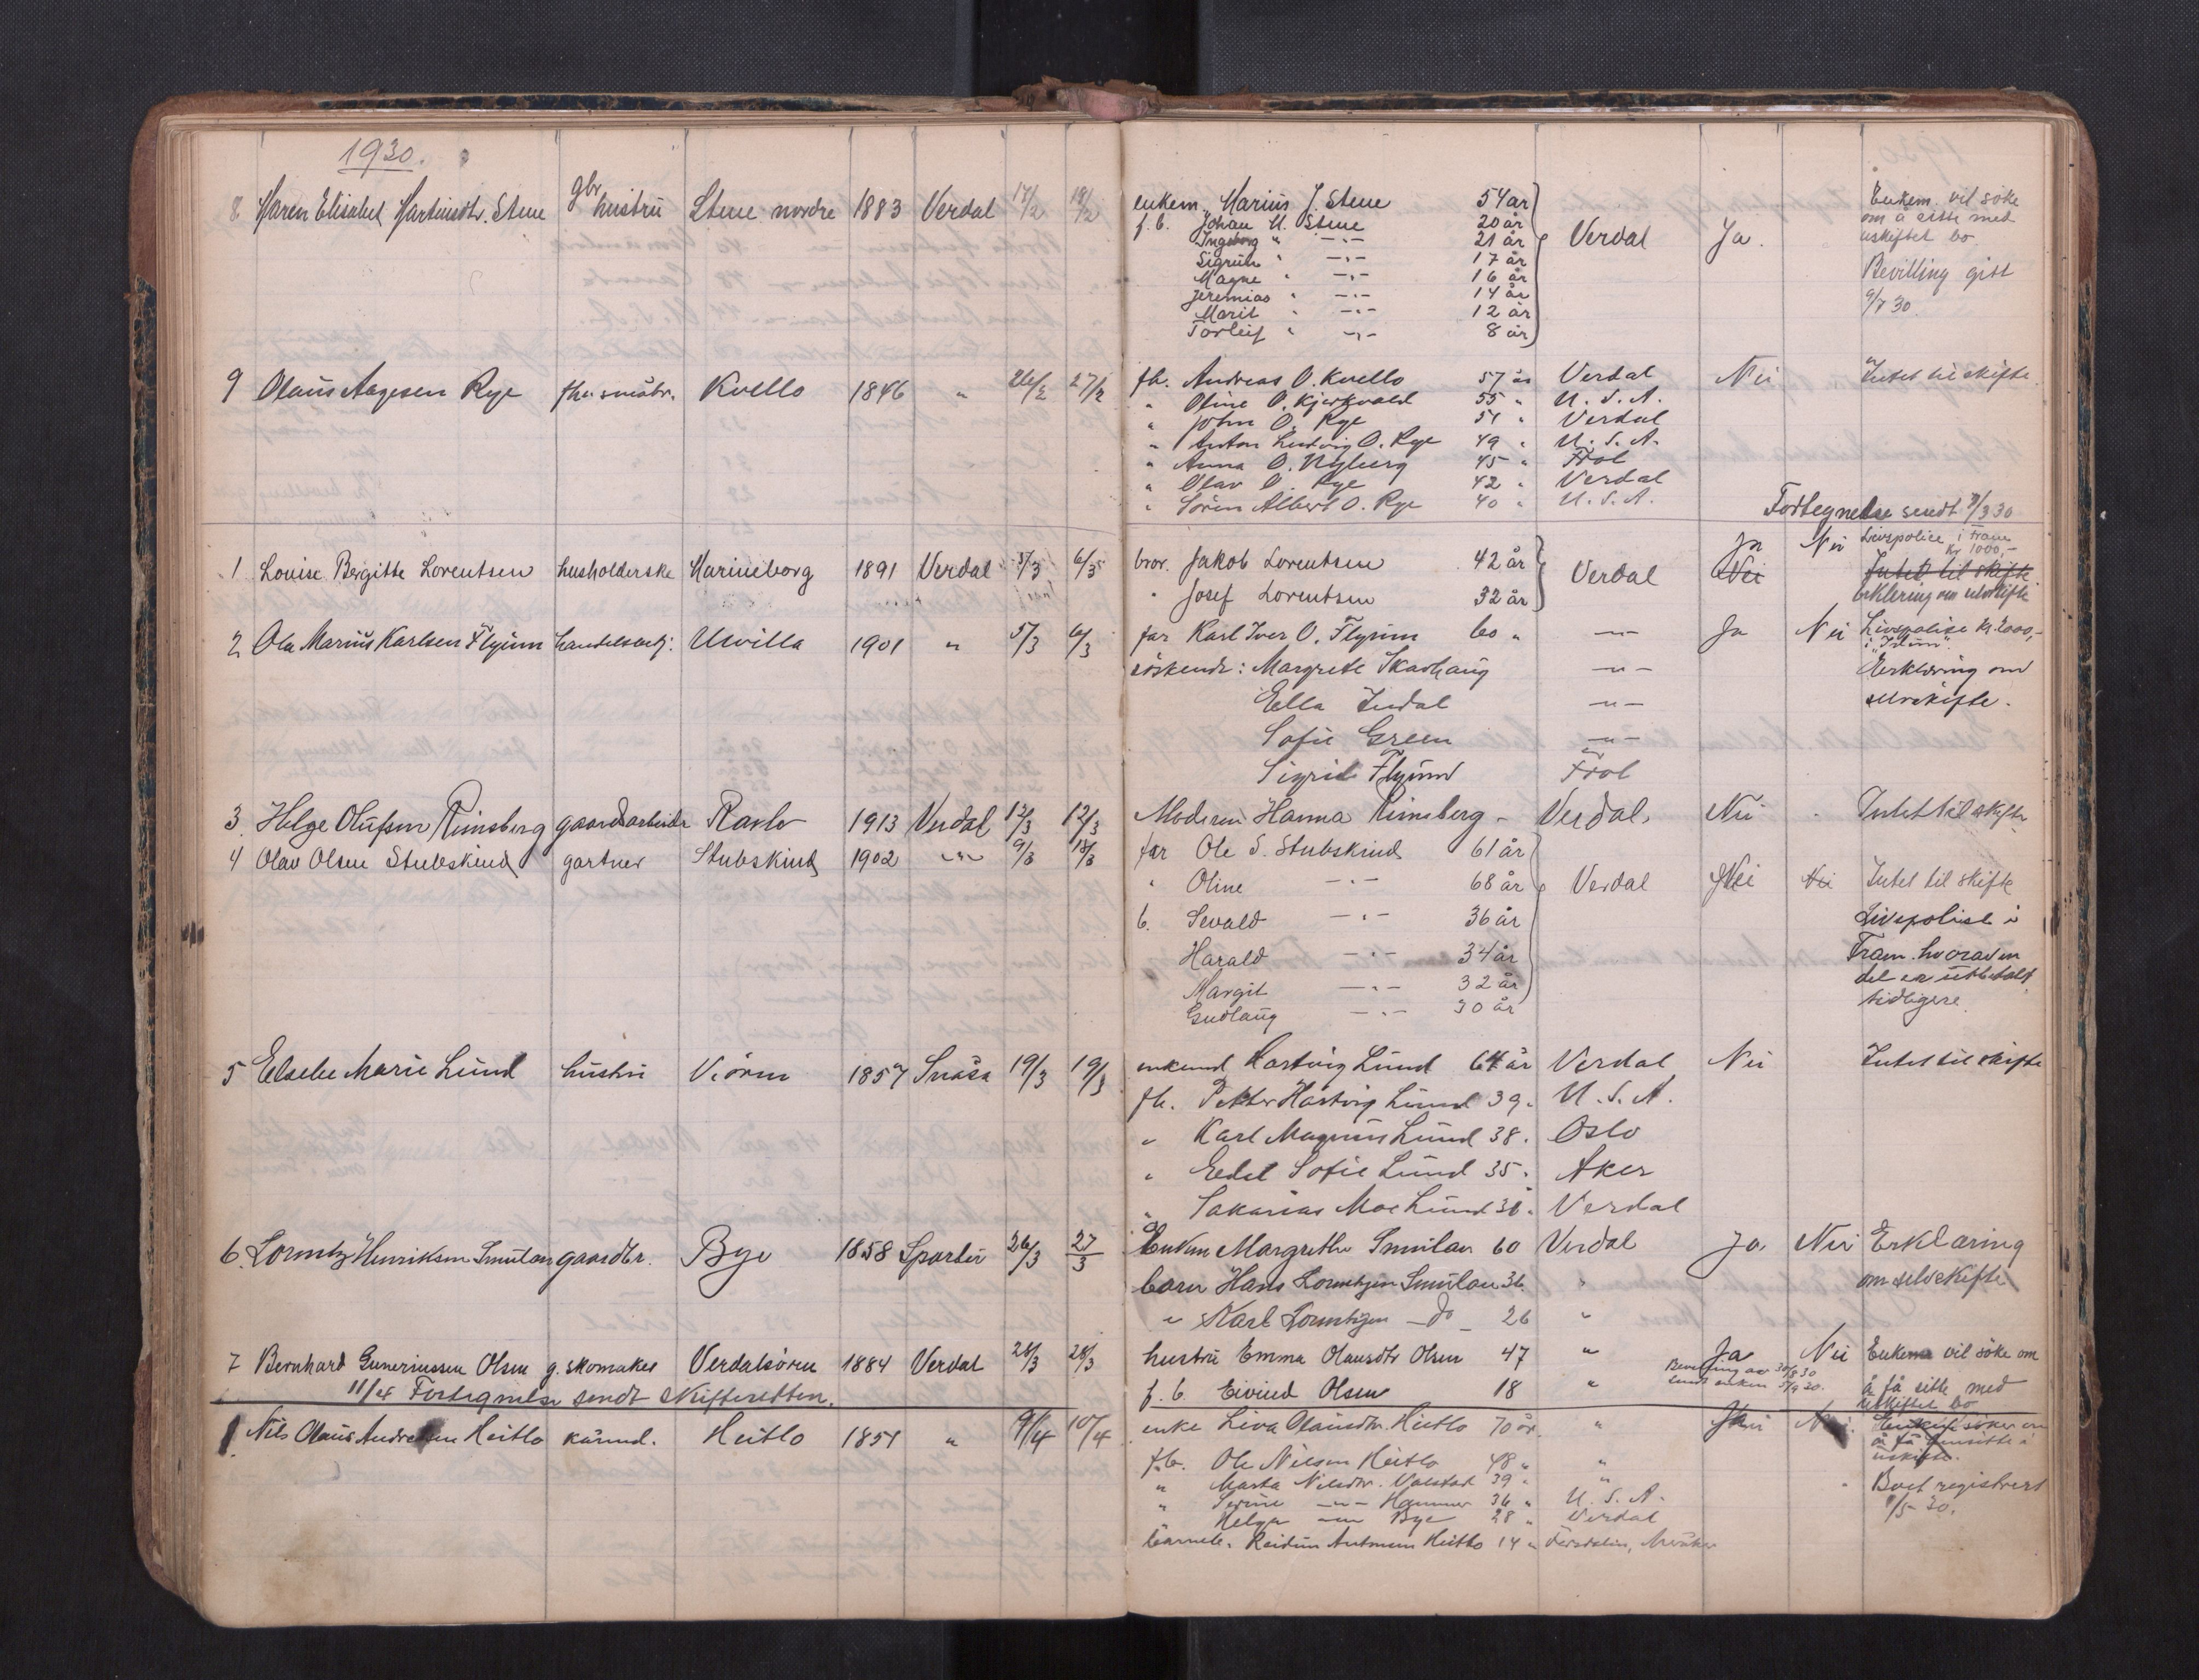 1930.
8 Maren Elisabet Martinsdtr. Stene gbr. hustru Stene nordre 1883 Verdal 17/2 19/2 enkem. Marius J. Stene 54 år Verdal Ja. Enkem. vil söke
f. b. Johan M. Stene 20 år om å sitte med
Ingeborg " -"- 21 år uskiftet bo.
Sigrun " -"- 17 år Bevilling gitt
Magne " -"- 16 år 9/7 30.
Jeremias " -"- 14 år
Marit " -"- 12 år
Torleif " -"- 8 år
9 Olaus Aagesen Rye fhv. småbr. Kvello 1846 " 26/2 27/2 fb. Andreas O. Kvello 57 år Verdal Nei Intet til skifte.
" Oline O. Kjerkvald 55 " U. S. A.
" John O. Rye 51 " Verdal
" Anton Ludvig O. Rye 49 " U. S. A.
" Anna O. Nyberg 45 " Frol
" Olav O. Rye 42 " Verdal
" Sören Albert O. Rye 40 " U. S. A.
Fortegnelse sendt 7/3 30
1 Louise Bergitte Lorentsen husholderske Marineborg 1891 Verdal 5/3 6/3 bror. Jakob Lorentsen 42 år Verdal Ja Nei Nei Livspolice i Fram Kr 1000,-
" Josef Lorentsen 32 år Intet til skifte
Erklering om selvskifte
2 Ola Marius Karlsen Flyum handelsbetj. Utvilla 1901 " 5/3 6/3 far Karl Iver O. Flyum 60 " -"- Ja Nei Livspolise kr. 2000,-
i "Idun".
söskende: Margrete Skavhaug -"- Erklæring om
Ella Indal -"- selvskifte.
Sofie Green -"-
Sigrid Flyum Frol
3 Helge Olufsen Rinsberg gaardsarbeider Ravlo 1913 Verdal 12/3 12/3 Moderen Hanna Rinsberg - Verdal. Nei - Intet til skifte
4 Olav Olsen Stubskind gartner Stubskind 1902 -"- 9/3 13/3 far Ole S. Stubskind 61 år
" Oline -"- 68 år Verdal Nei Nei Intet til skifte
b. Sevald -"- 36 år Livspolise i
Harald -"- 34 år Fram. hvorav en
Margit -"- 32 år del er utbetalt
Gudlaug -"- 30 år tidligere.
5 Elsebe Marie Lund hustru Viörm 1857 Snåsa 19/3 19/3 enkemd Hartvig Lund 64 år Verdal Nei Intet til skifte
fb. Petter Hartvig Lund 39 " U. S. A.
" Karl Magnus Lund 38 " Oslo
" Edel Sofie Lund 35 " Aker
" Sakarias Moe Lund 31 " Verdal
6. Lorentz Henriksen Smulan gaardbr. Bye 1858 Sparbu 26/3 27/3 Enken Margrethe Smulan 60 Verdal Ja Nei Erklæring
barn Hans Lorentzen Smulan 36. " om selvskifte
" Karl Lorentzen -do- 26 "
7 Bernhard Guneriussen Olsen g. skomaker Verdalsören 1884 Verdal 28/3 28/3 hustru Emma Olausdtr Olsen 47 " Ja Nei Enken vil söke om
Bevilling av 30/8 30
sendt enken 5/9 30.
11/4 Fortegnelse sendt Skifteretten. f. b. Eivind Olsen 18 " å få sitte med
uskiftet bo
1 Nils Olaus Andreassen Heitlo kårmd. Heitlo 1851 " 9/4 10/4 enke Liva Olausdtr. Heitlo 70 år " Nei Enken söker om
å få hensitte i
fb. Ole Nilsen Heitlo 48 " " uskifte.
" Marta Nilsdtr. Volstad 39 " " Boet registrert
" Serine -"- Hammer 36 " U. S. A. 1/5 30.
" Helga -"- Bye 28 " Verdal
barneb. Reidun Antonsen Heitlo 14 " Færdalen, Meråker